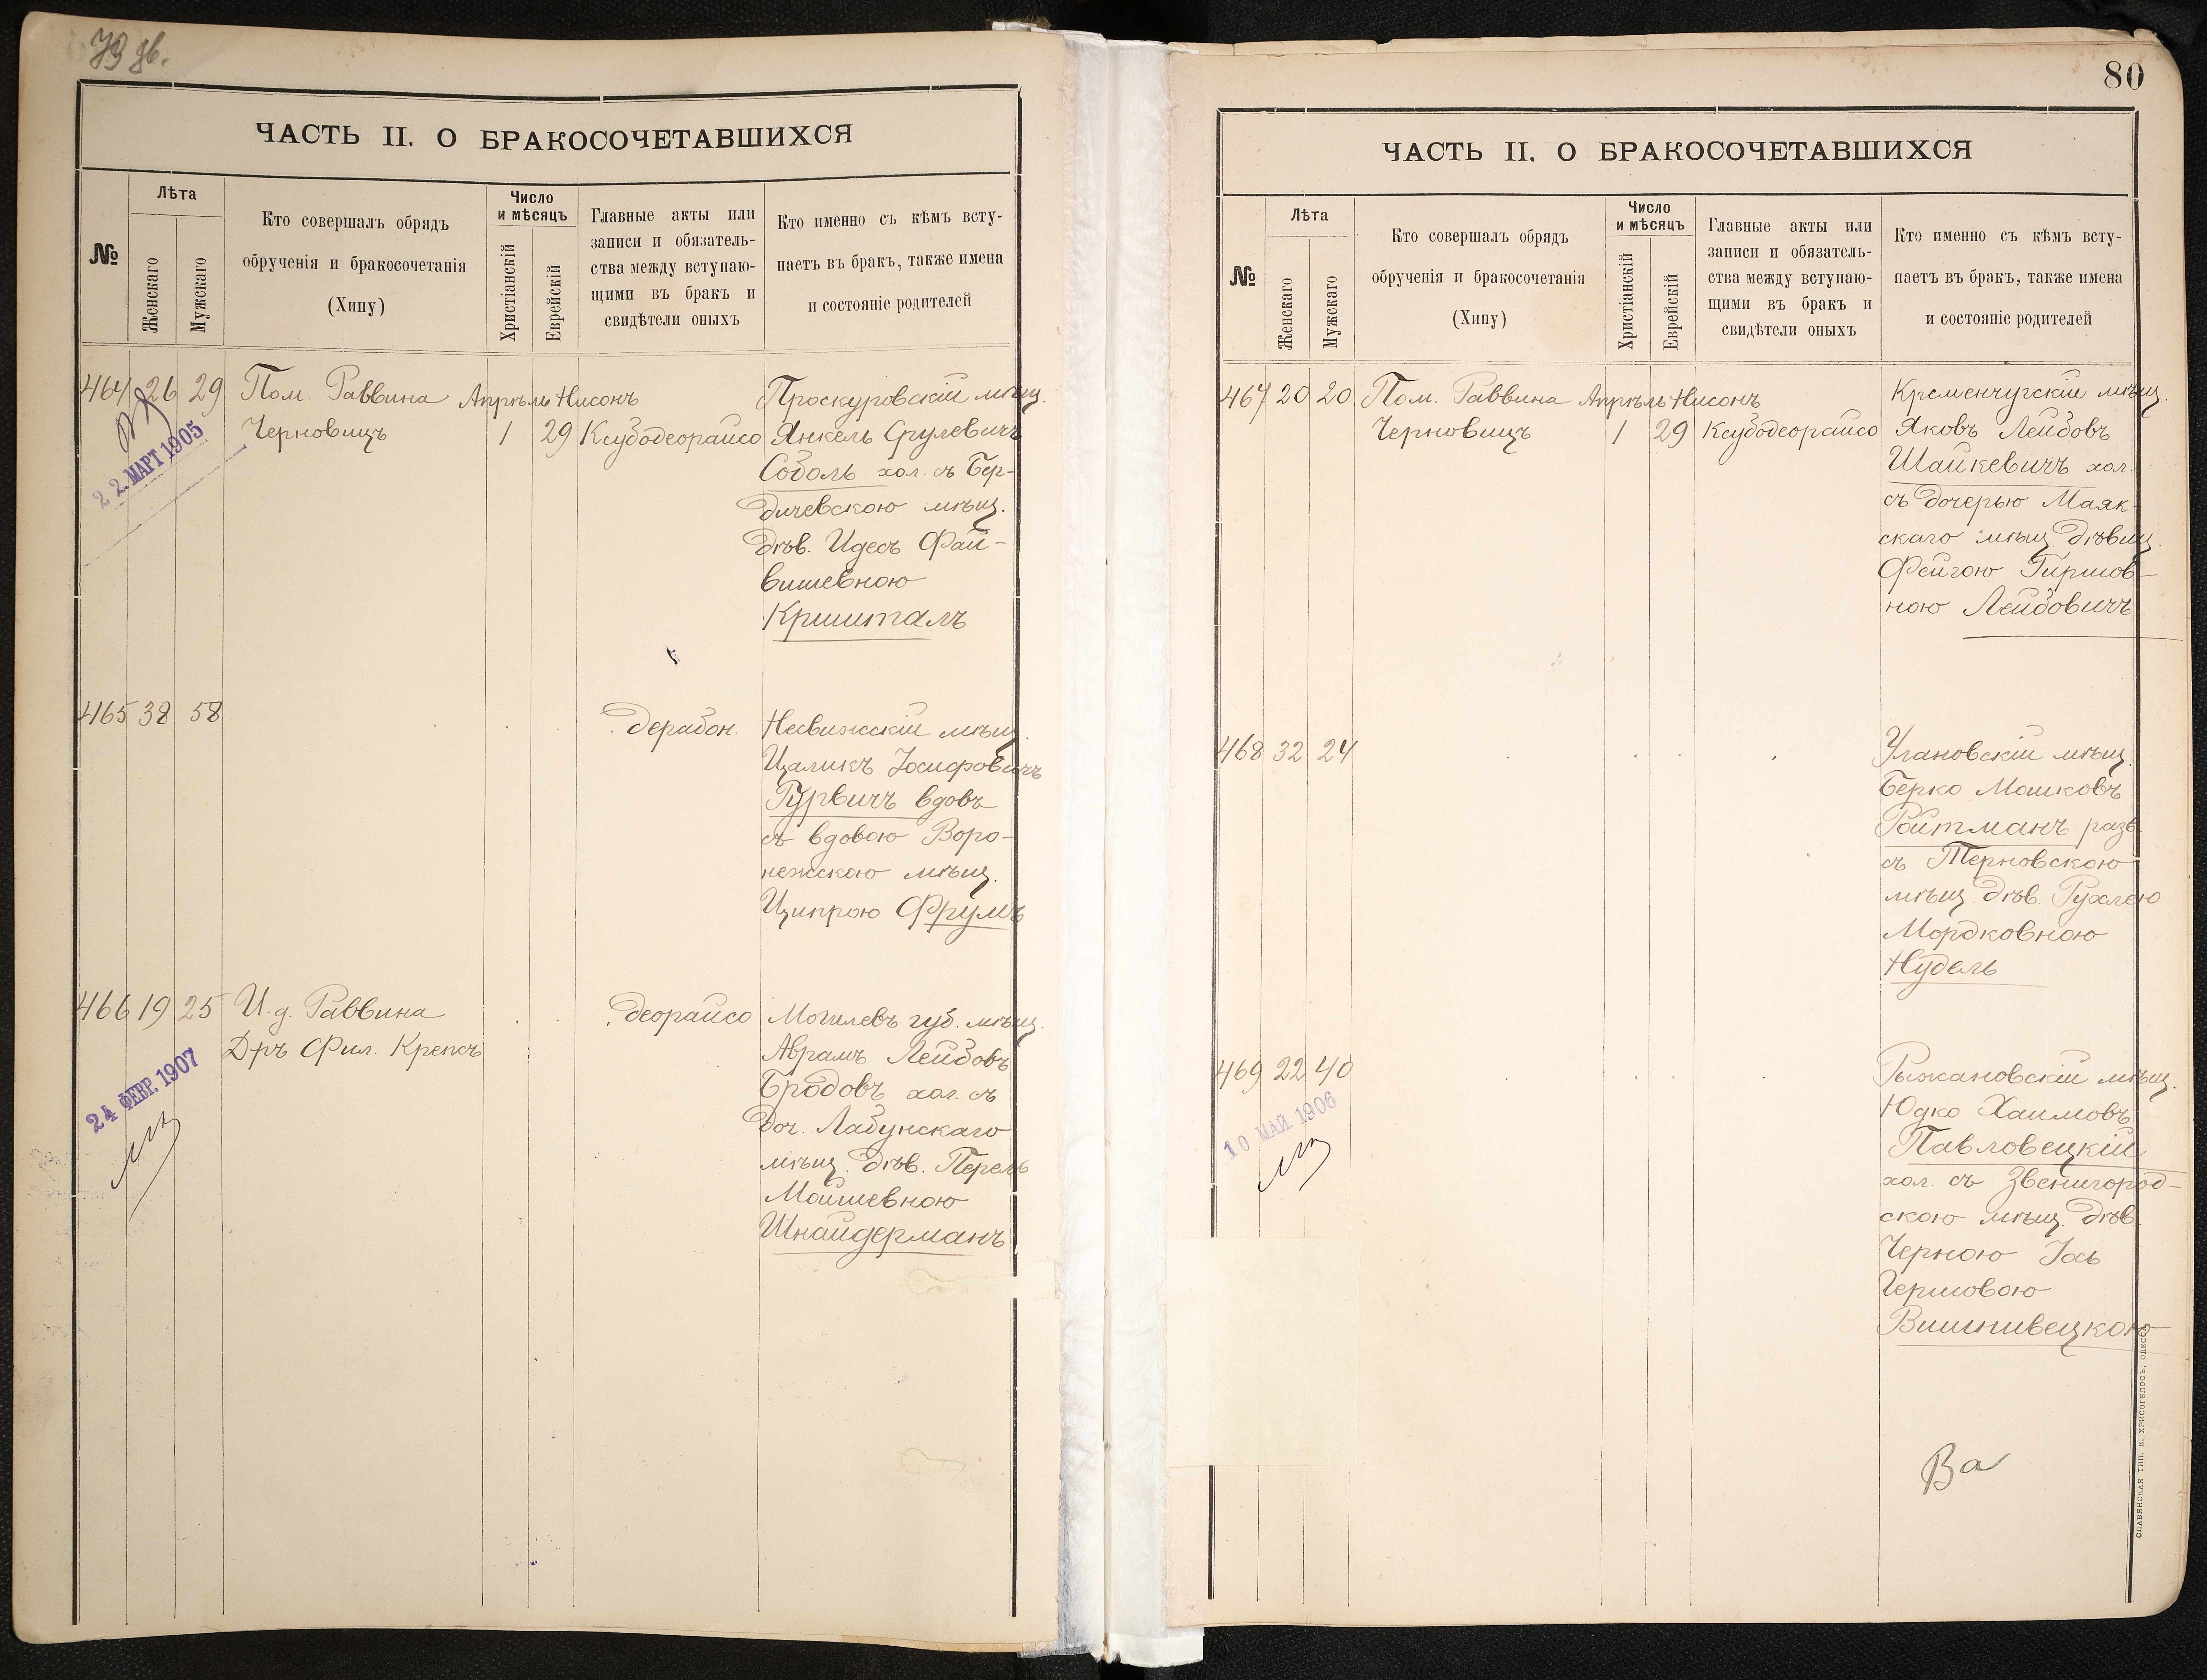 79 об.
ЧАСТЬ II. О БРАКОСОЧЕТАВШИХСЯ
№
Лѣта
Женскаго
Мужскаго
Кто совершалъ обрядъ
обрученія и бракосочетанія
(Хипу)
Число
и мѣсяцъ
Христіанскій
Еврейскій
Главные акты или
записи и обязатель-
ства между вступаю-
щими въ бракъ и
свидѣтели оныхъ
Кто именно съ кѣмъ всту-
паетъ въ бракъ, также имена
и состояніе родителей
464 26 29 Пом. Раввина Апрѣль Нисонъ Проскуровскій мѣщ.
Черновицъ 1 29 Ксубодеорайсо Янкель Срулевичъ
22. МАРТ 1905
Соболь хол. съ Бер-
дичевскою мѣщ.
дѣв. Идесъ Фай-
вишевною
Кришталъ
465 38 58 дерабон. Несвижскій мѣщ.
Цаликъ Іосифовичъ
Гурвичъ вдовъ
съ вдовою Воро-
нежскаю мѣщ.
Ципрою Фрумъ
466 19 25 И. д. Раввина деорайсо Могилевъ губ. мѣщ.
Д-ръ Фил. Крепсъ Абрамъ Лейбовъ
24 ФЕВР. 1907
Бродовъ хол. съ
доч. Лабунскаго
мѣщ. дѣв. Перель
Мойшевною
Шнайдерманъ
80
ЧАСТЬ II. О БРАКОСОЧЕТАВШИХСЯ
№
Лѣта
Женскаго
Мужскаго
Кто совершалъ обрядъ
обрученія и бракосочетанія
(Хипу)
Число
и мѣсяцъ
Христіанскій
Еврейскій
Главные акты или
записи и обязатель-
ства между вступаю-
щими въ бракъ и
свидѣтели оныхъ
Кто именно съ кѣмъ всту-
паетъ въ бракъ, также имена
и состояніе родителей
467 20 20 Пом. Раввина Апрѣль Нисонъ Кременчугскій мѣщ.
Черновицъ 1 29 Ксубодеорайсо Яковъ Лейбовъ
Шайкевичъ хол.
съ дочерью Маяк-
скаго мѣщ дѣвиц.
Фейгою Гиршов-
ною Лейбовичъ
468 32 24 Улановскій мѣщ.
Берко Мошковъ
Ройтманъ разв.
съ Терновскою
мѣщ. дѣв. Рухлею
Мордковною
Нудель
469 22 40 Рыжановскій мѣщ.
10 МАЙ 1906
Юдко Хаимовъ
Павловецкій
хол. съ Звенигород-
скою мѣщ. дѣв.
Черною Іось
Гершовою
Вишнивецкою
Ва
СЛАВЯНСКАЯ ТИП. Е. ХРИСОГЕЛОСЪ, ОДЕССА